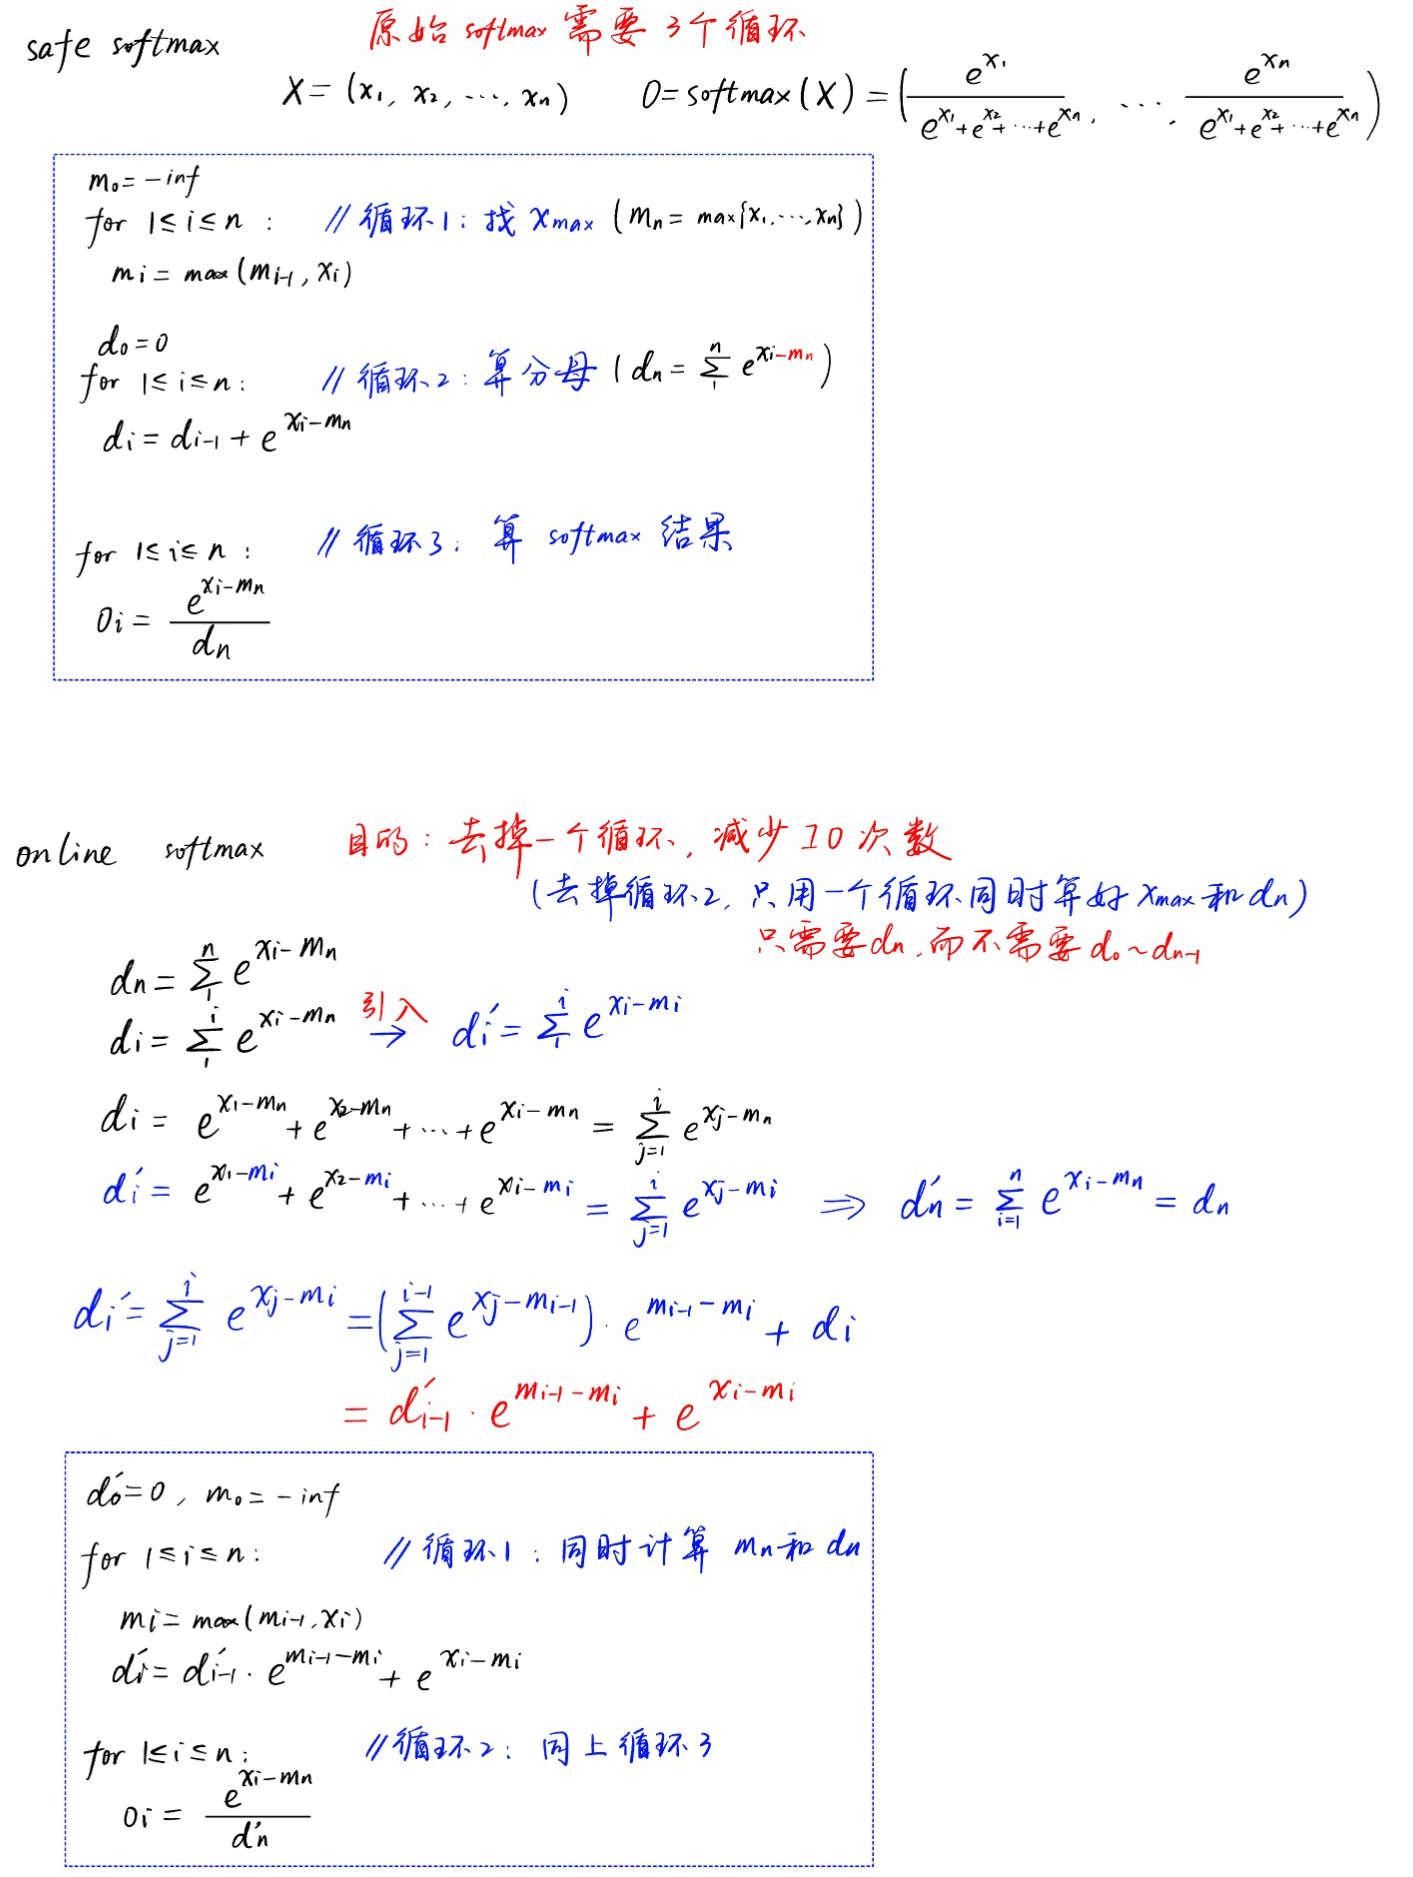 safe softmax 原始 softmax 需要 3个循环
X = (x₁, x₂, ⋯, xₙ) O = softmax(X) = (e^{x₁} / (e^{x₁}+e^{x₂}+⋯+e^{xₙ}), ⋯, e^{xₙ} / (e^{x₁}+e^{x₂}+⋯+e^{xₙ}))
m₀ = -inf
for 1≤i≤n : // 循环1: 找 x_{max} (mₙ = max{x₁,⋯,xₙ})
m_i = max(m_{i-1}, x_i)
d₀ = 0
for 1≤i≤n: // 循环2: 算分母 (dₙ = Σ_{1}^{n} e^{x_i-mₙ})
d_i = d_{i-1} + e^{x_i-mₙ}
for 1≤i≤n : // 循环3: 算 softmax 结果
O_i = e^{x_i-mₙ} / dₙ
online softmax 目的: 去掉一个循环, 减少IO次数
(去掉循环2, 只用一个循环同时算好 x_{max} 和 dₙ)
只需要dₙ, 而不需要 d₀~d_{n-1}
dₙ = Σ_{1}^{n} e^{x_i-mₙ}
d_i = Σ_{1}^{i} e^{x_i-mₙ} 引入 → d_i' = Σ_{1}^{i} e^{x_i-m_i}
d_i = e^{x₁-mₙ} + e^{x₂-mₙ} + ⋯ + e^{x_i-mₙ} = Σ_{j=1}^{i} e^{x_j-mₙ}
d_i' = e^{x₁-m_i} + e^{x₂-m_i} + ⋯ + e^{x_i-m_i} = Σ_{j=1}^{i} e^{x_j-m_i} ⇒ dₙ' = Σ_{i=1}^{n} e^{x_i-mₙ} = dₙ
d_i' = Σ_{j=1}^{i} e^{x_j-m_i} = (Σ_{j=1}^{i-1} e^{x_j-m_{i-1}}) · e^{m_{i-1}-m_i} + d_i
= d_{i-1}' · e^{m_{i-1}-m_i} + e^{x_i-m_i}
d₀' = 0, m₀ = -inf
for 1≤i≤n: // 循环1: 同时计算 mₙ和dₙ
m_i = max(m_{i-1}, x_i)
d_i' = d_{i-1}' · e^{m_{i-1}-m_i} + e^{x_i-m_i}
for 1≤i≤n: // 循环2: 同上循环3
O_i = e^{x_i-mₙ} / dₙ'